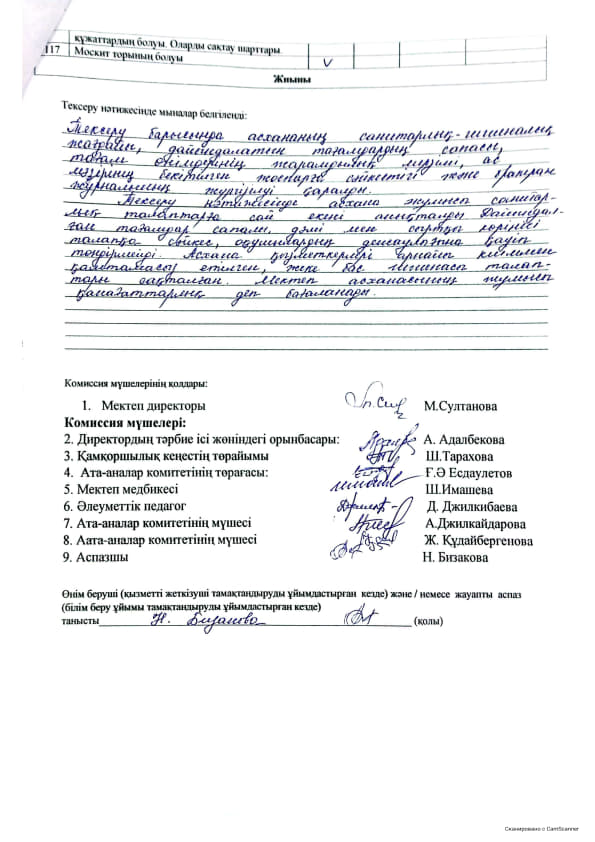 құжаттардың болуы. Оларды сақтау шарттары.
117 Москит торының болуы V
Жиыны
Тексеру нәтижесінде мыналар белгіленді:
Тексеру барысында асхананың санитарлық-гигиеналық
жағдайы, дайындалатын тағамдардың сапасы,
тағам өнімдерінің жарамдылық мерзімі, ас
мәзірінің бекітілген жоспарға сәйкестігі және бракераж
журналының жүргізілуі қаралды.
Тексеру нәтижесінде асхана жұмысы санитар-
лық талаптарға сай екені анықталды. Дайындал-
ған тағамдар сапалы, дәмі мен сыртқы көрінісі
талапқа сәйкес, оқушылардың денсаулығына қауіп
төндірмейді. Асхана қызметкерлері арнайы киіммен
қамтамасыз етілген, жеке бас гигиенасы талап-
тары сақталған. Мектеп асханасының жұмысы
қанағаттарлық деп бағаланады.
Комиссия мүшелерінің қолдары:
1. Мектеп директоры М.Султанова
Комиссия мүшелері:
2. Директордың тәрбие ісі жөніндегі орынбасары: А. Адалбекова
3. Қамқоршылық кеңестің төрайымы Ш.Тарахова
4. Ата-аналар комитетінің төрағасы: Ғ.Ә Есдаулетов
5. Мектеп медбикесі Ш.Имашева
6. Әлеуметтік педагог Д. Джилкибаева
7. Ата-аналар комитетінің мүшесі А.Джилкайдарова
8. Аата-аналар комитетінің мүшесі Ж. Құдайбергенова
9. Аспазшы Н. Бизакова
Өнім беруші (қызметті жеткізуші тамақтандыруды ұйымдастырған кезде) және / немесе жауапты аспаз
(білім беру ұйымы тамақтандыруды ұйымдастырған кезде)
танысты Н. Бизакова (қолы)
Сканировано с CamScanner